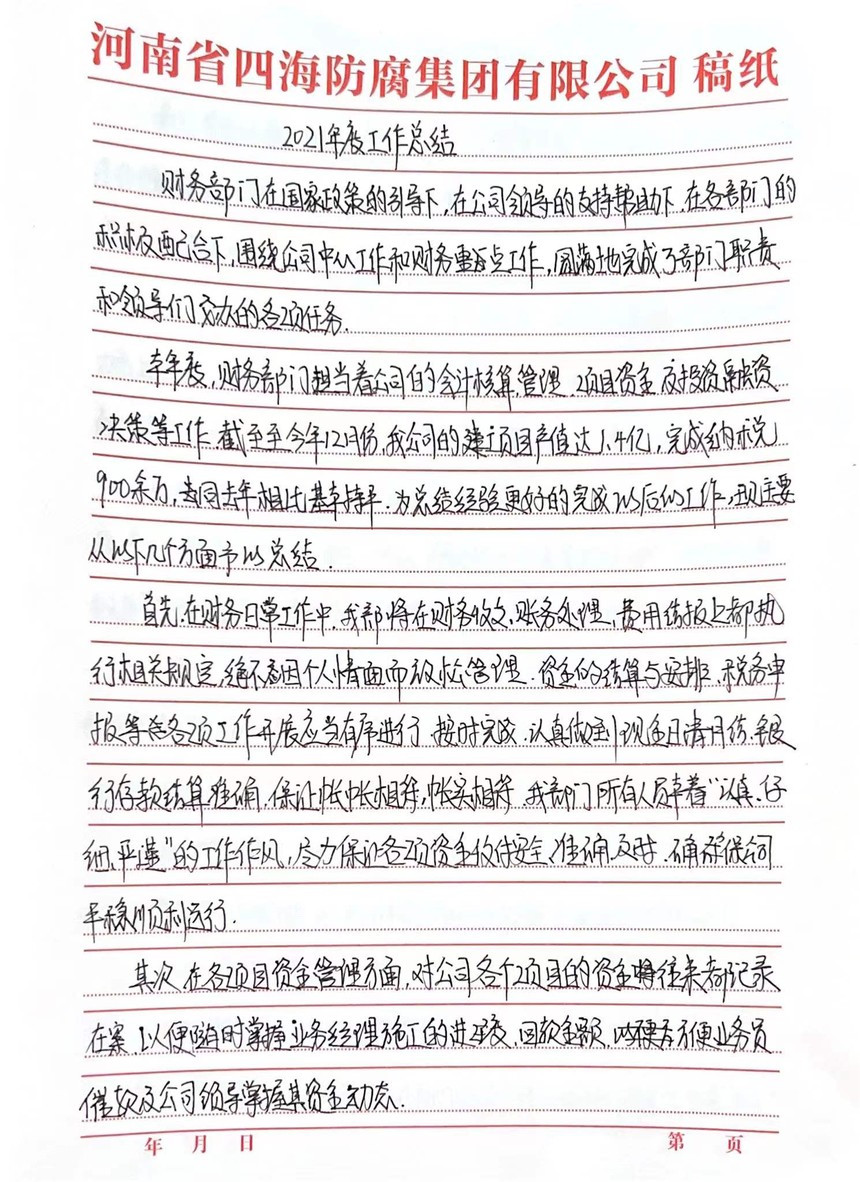 河南省四海防腐集团有限公司稿纸
2021年度工作总结
财务部门在国家政策的引导下,在公司领导的支持帮助下,在各部门的
积极配合下,围绕公司中心工作和财务重点工作,圆满地完成了部门职责
和领导们交办的各项任务.
本年度,财务部门担当着公司的会计核算,管理、项目资金及投资融资
决策等工作.截至至今年12月份,我公司的建设项目产值达1.4亿,完成纳税
900余万,去同去年相比基本持平.为总结经验更好的完成以后的工作,现主要
从以下几个方面予以总结.
首先.在财务日常工作中,我部将在财务收支、账务处理、费用结报上都执
行相关规定,绝不看因个人情面而放松管理.资金的结算与安排、税务申
报等各项工作开展应当有序进行.按时完成.认真做到现金日清月结.银
行存款结算准确.保证帐帐相符,帐实相符.我部门所有人员本着“认真、仔
细、严谨”的工作作风,尽力保证各项资金收付安全、准确、及时.确保公司
平稳顺利运行.
其次.在各项目资金管理方面,对公司各个项目的资金往来都记录
在案.以便随时掌握业务经理施工的进度、回款金额,以便方便业务员
催款及公司领导掌握其资金动态.
年 月 日
第 页